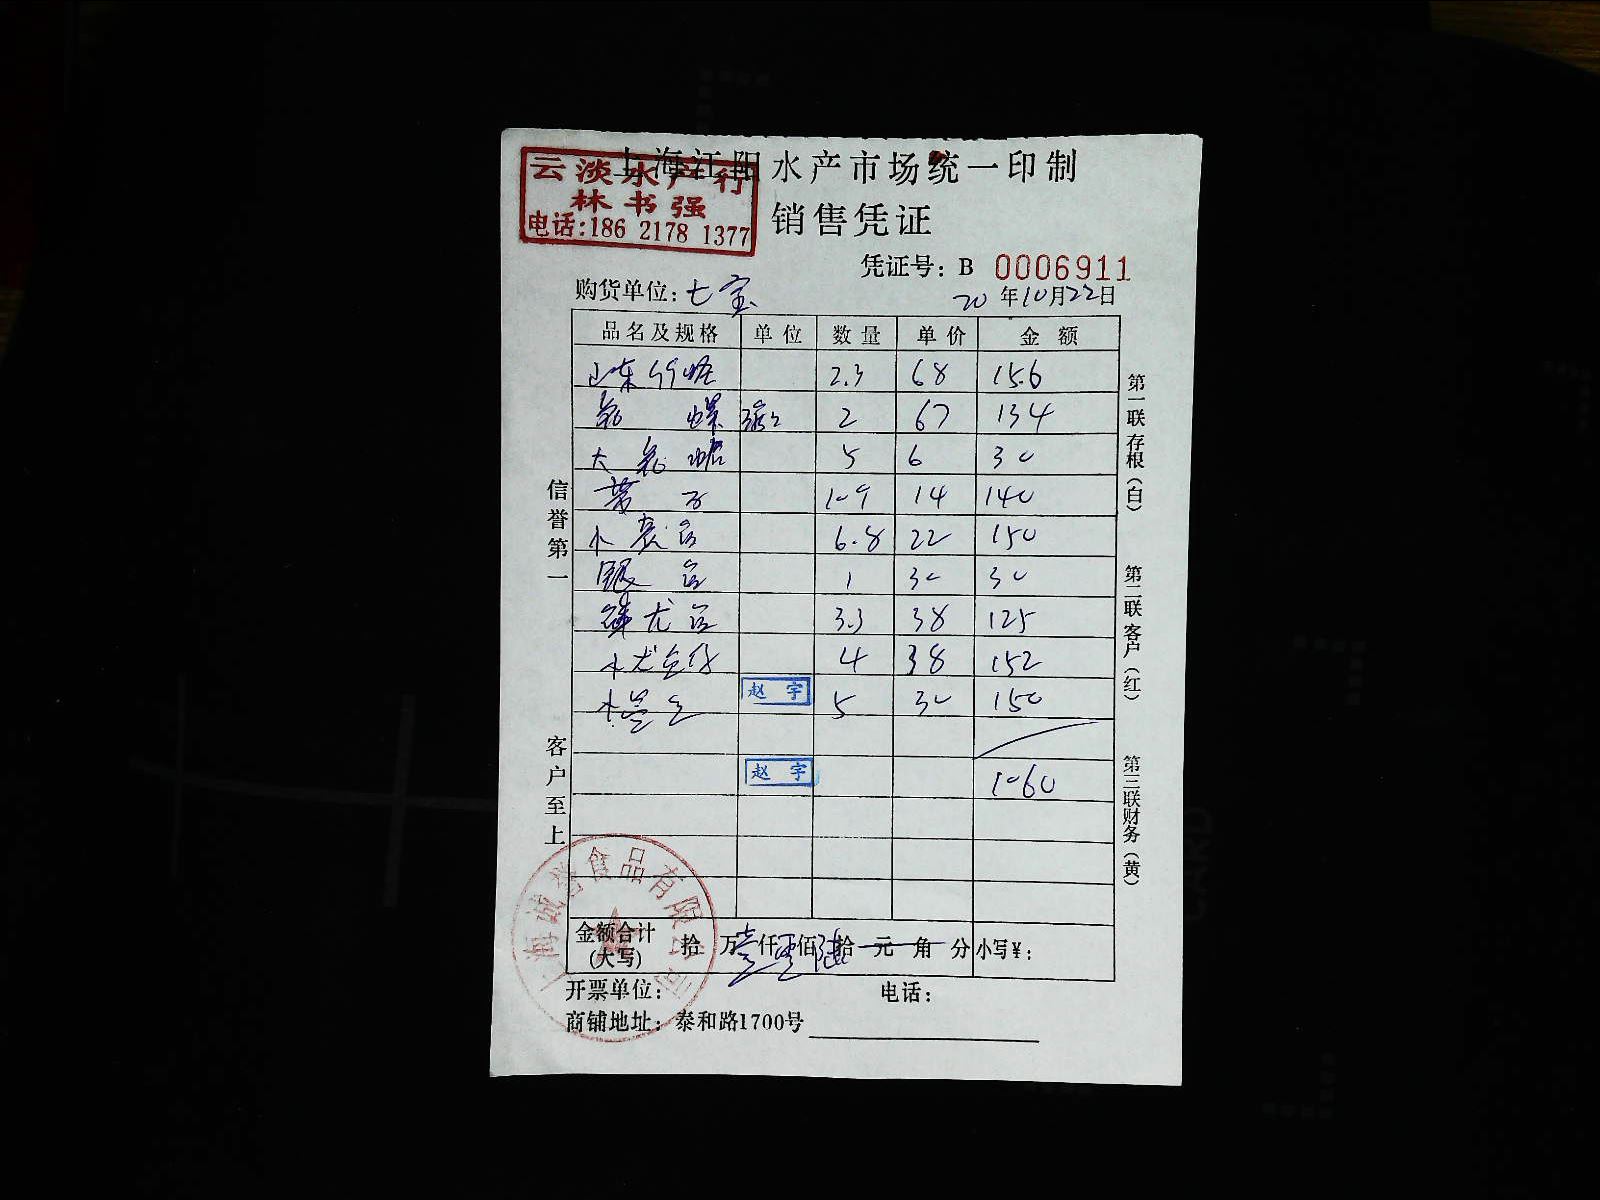 上海江阳水产市场统一印制
云淡水产行
林书强
电话:186 2178 1377
销售凭证
凭证号: B 0006911
购货单位: 七宝
20年10月22日
品名及规格 单位 数量 单价 金额
山东 2.3 68 156
2 67 134
大 5 6 30
10.9 14 140
小 6.8 22 150
银 1 30 30
3.3 38 125
小 4 38 152
小 赵宇 5 30 150
赵宇 1060
金额合计(大写) 拾 万壹仟零佰陆拾 元 角 分 小写¥:
开票单位: 电话:
商铺地址: 泰和路1700号
信誉第一
客户至上
第一联存根(白)
第二联客户(红)
第三联财务(黄)
上海诚誉食品有限公司